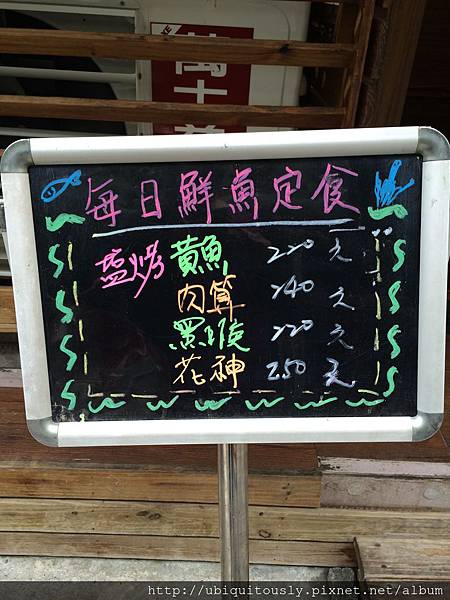 萬士益
每日鮮魚定食
塩烤 黃魚 220元
肉算 240元
黑猴 220元
花神 250元
http://ubiquitously.pixnet.net/album